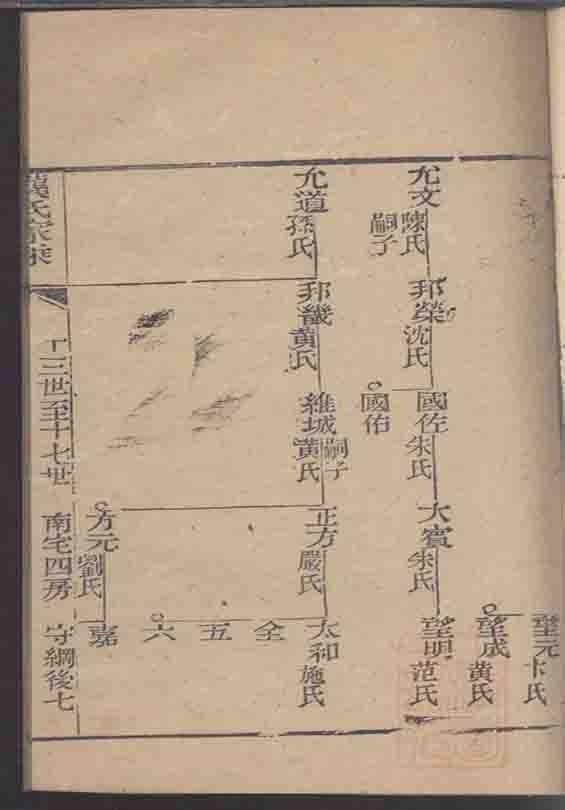 允文 陳氏
嗣子
允道 孫氏
邦榮 沈氏
邦畿 黃氏
國佐 朱氏
國佑
維城 黃氏
嗣子
大賓 朱氏
正方 嚴氏
方元 劉氏
望元 卞氏
望成 黃氏
望明 范氏
太和 施氏
全
五
六
嘉
氏家乘
十三世至十七世
南宅四房
守綱後七